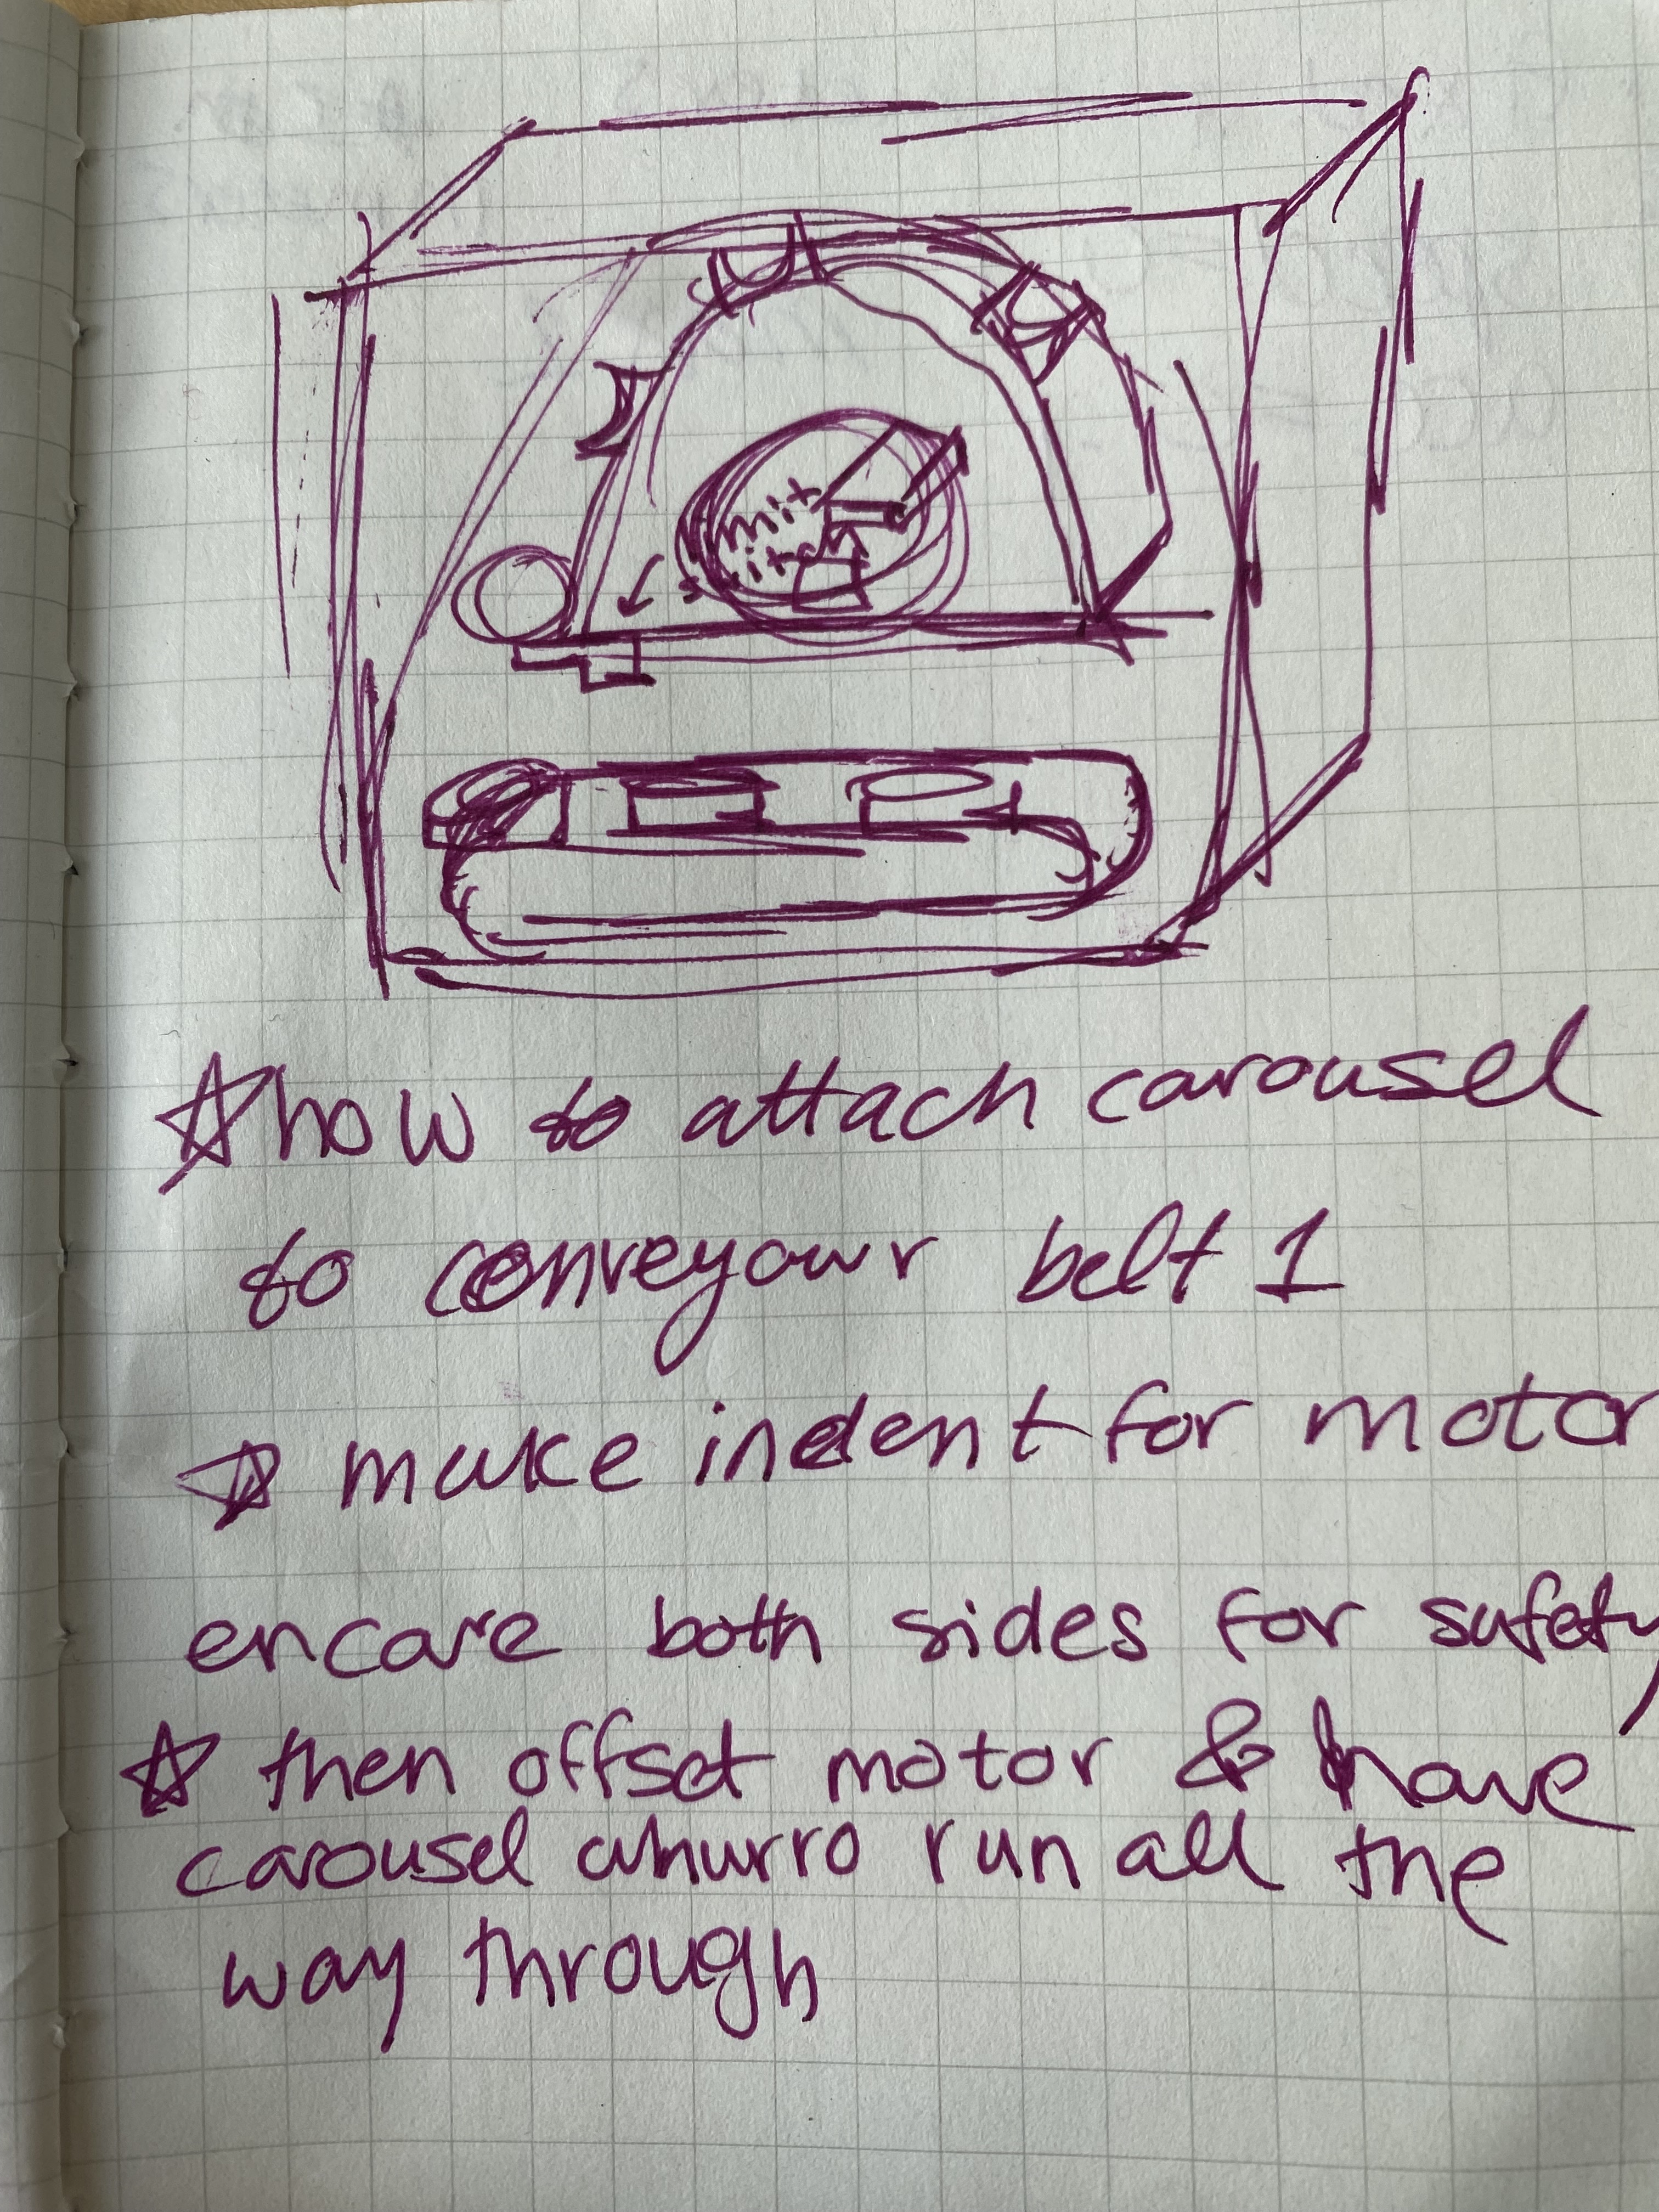 limit
switch
☆ how to attach carousel
to conveyowr belt 1
☆ make indent for motor
encare both sides for safety
☆ then offset motor & have
carousel churro run all the
way through